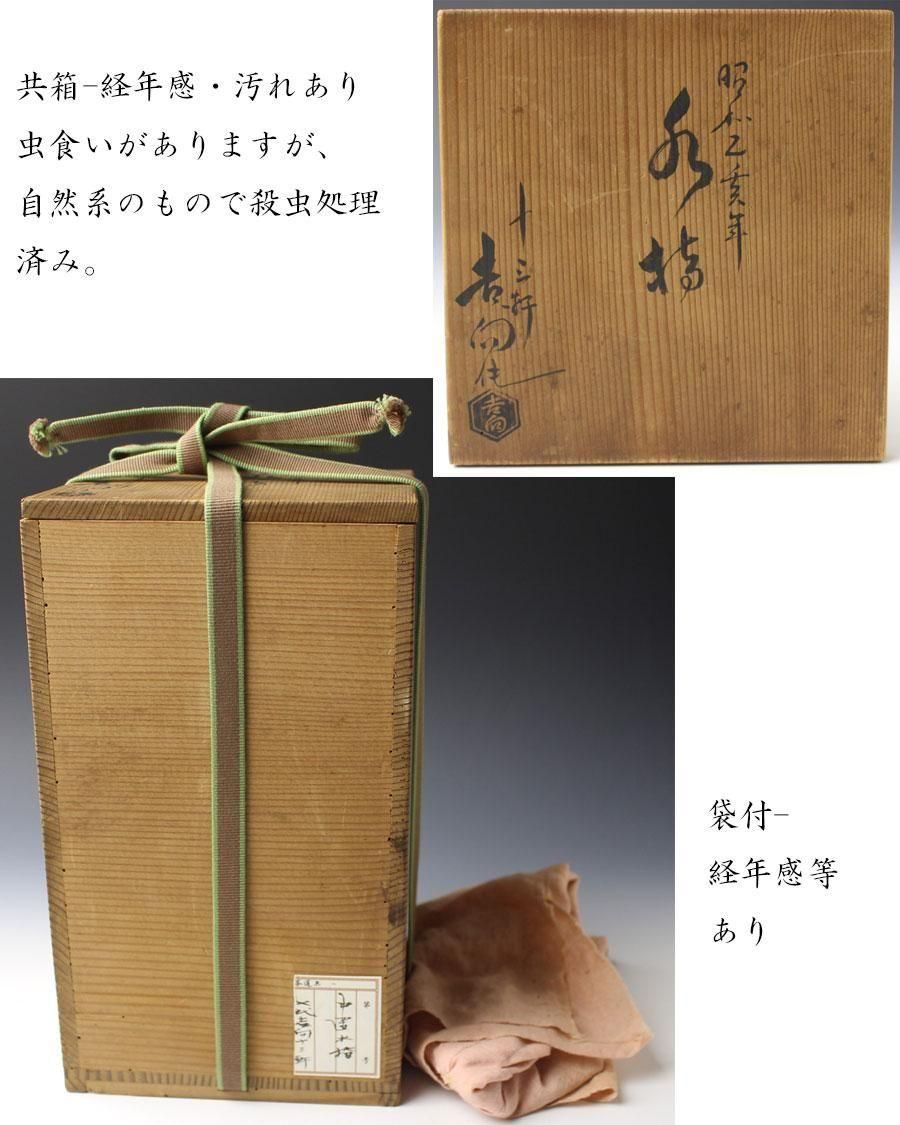 共箱-経年感・汚れあり
虫食いがありますが、
自然系のもので殺虫処理
済み。
昭和乙亥年
水指
十三軒
吉向造
吉向
袋付-
経年感等
あり
茶道具
第 号
水指
吉向十三軒